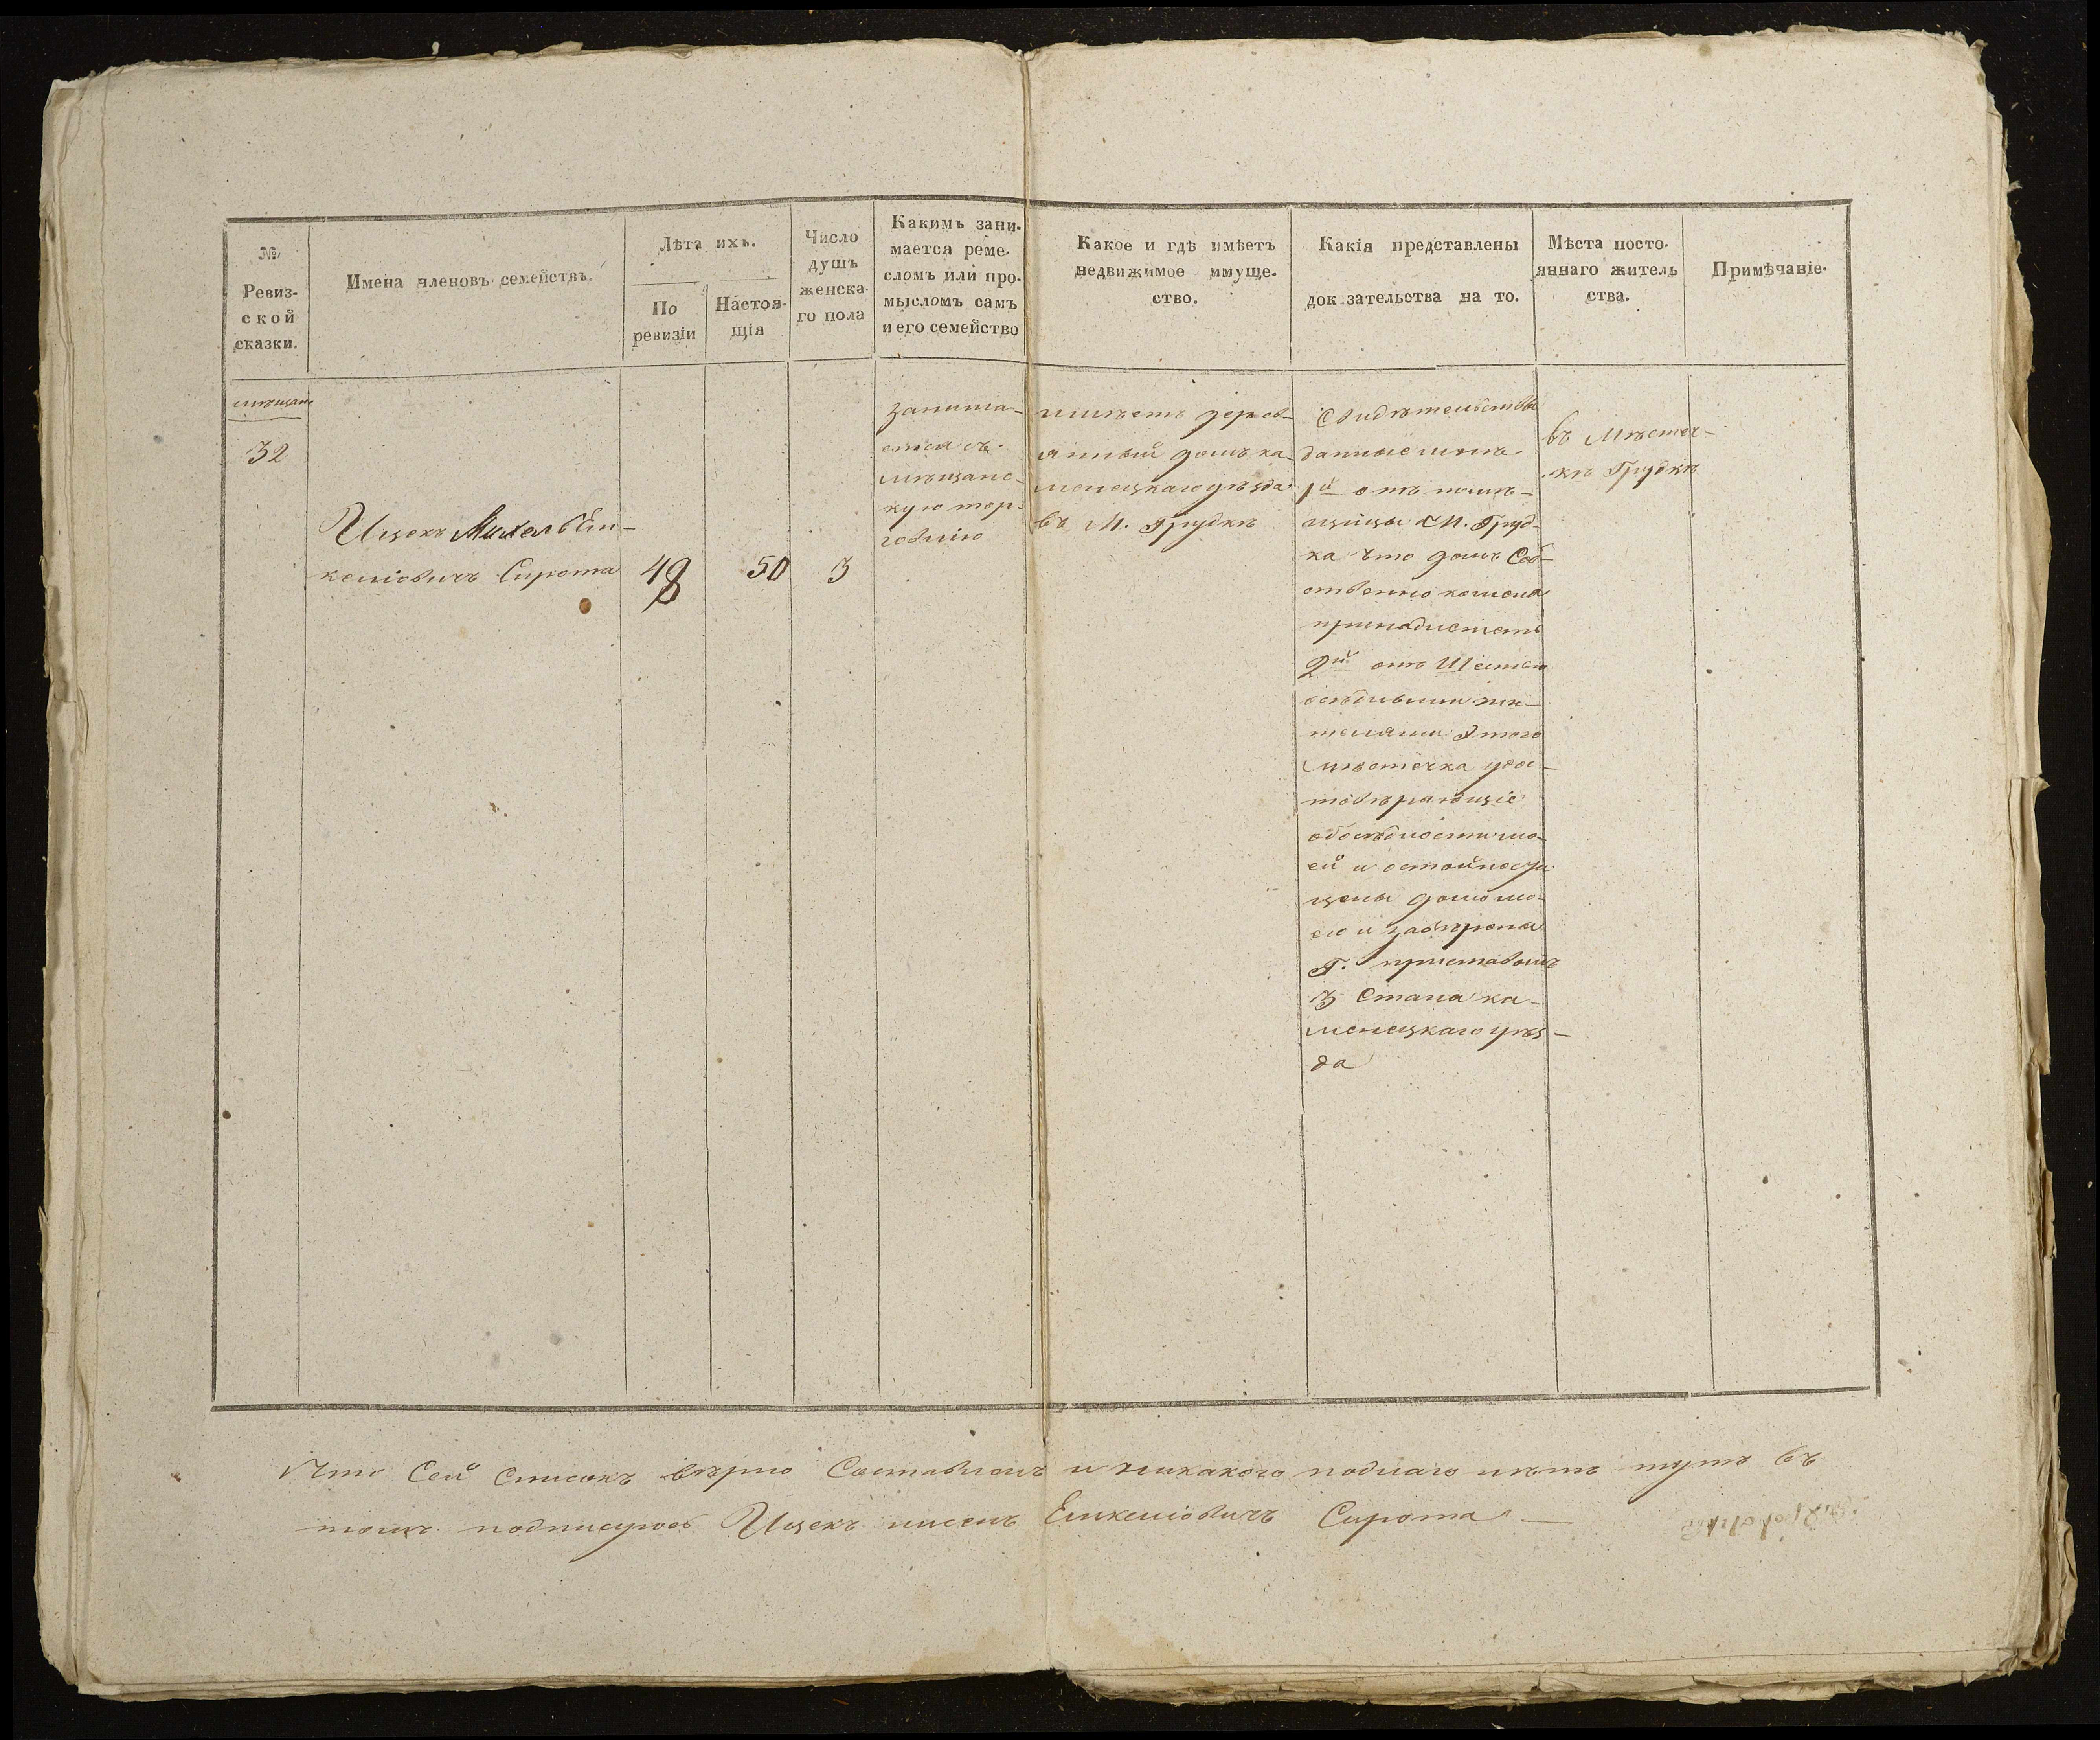 №
Ревиз-
ской
сказки.
Имена членовъ семействъ.
Лѣта ихъ.
По
ревизіи
Настоя-
щія
Число
душъ
женска
го пола
Какимъ зани-
мается реме-
сломъ или про-
мысломъ самъ
и его семейство
Какое и гдѣ имѣетъ
недвижимое имуще-
ство.
Какія представлены
док зательства на то.
Мѣста посто-
яннаго житель
ства.
Примѣчаніе.
мѣщане
32
Ицекъ
Сирота
48
50
3
занима-
ется съ
мѣщанс-
кую тор-
говлію
имѣетъ дерев-
янный домъ ка-
менецкаго уѣзда
въ М. Грудкѣ
Свидѣтельства
данные мнѣ
1й отъ помѣ-
щицы М. Груд-
ка что домъ Соб-
ственно
принадлежитъ
2й отъ Шести
осѣдлыми жи-
телями Этого
мѣстечка удос-
товѣряющіе
обосѣдлости мо-
ей и стойности
цены дома мо-
его и заверена
Г. приставомъ
3 Стана ка-
менецкаго уѣз-
да
въ Мѣстеч-
кѣ Грудкѣ
Что Сей Списокъ вѣрно Составленъ и никакого подлаго нѣтъ тутъ въ
томъ подписуюсь Ицекъ Сирота